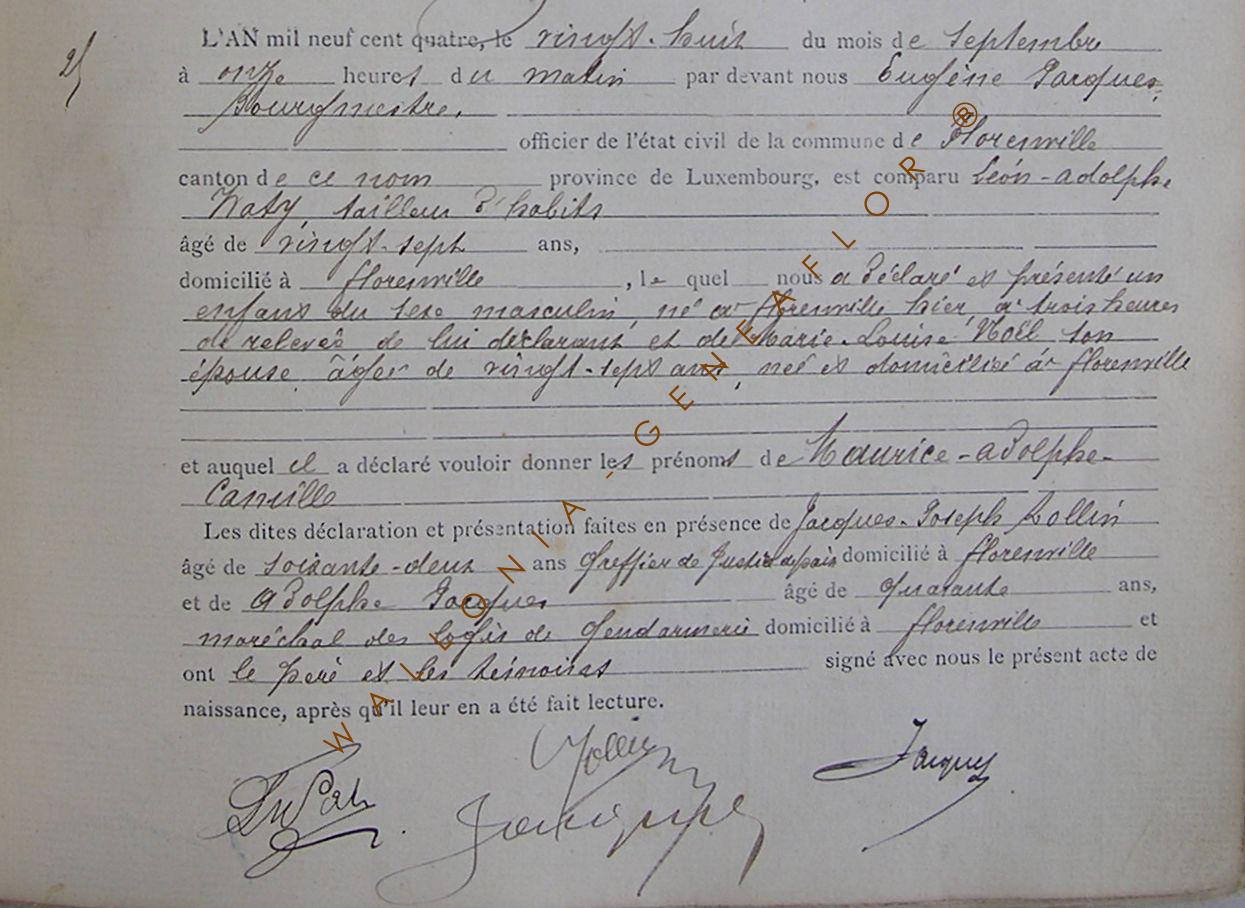 L'AN mil neuf cent quatre, le vingt-huit du mois de septembre
à onze heures du matin par devant nous Eugène Jacques,
Bourgmestre,
officier de l'état civil de la commune de Florenville
canton de ce nom province de Luxembourg, est comparu Léon-Adolphe
Waty, tailleur d'habits
âgé de vingt-sept ans,
domicilié à Florenville, le quel nous a déclaré et présenté un
enfant du sexe masculin, né à Florenville hier, à trois heures
de relevée de lui déclarant et de Marie-Louise Noël son
épouse âgée de vingt-sept ans, née et domiciliée à Florenville
et auquel il a déclaré vouloir donner les prénoms de Maurice-Adolphe-
Camille
Les dites déclaration et présentation faites en présence de Jacques-Joseph Rollin
âgé de soixante-deux ans Greffier de Justice de paix domicilié à Florenville
et de Adolphe Jacques âgé de quarante ans,
maréchal des logis de Gendarmerie domicilié à Florenville et
ont le père et les témoins signé avec nous le présent acte de
naissance, après qu'il leur en a été fait lecture.
Jacques
Jacques
WALLONIA - GENEAFLOR®